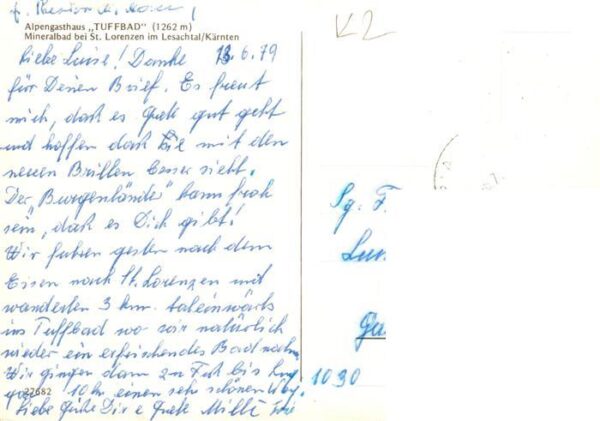 Alpengasthaus „TUFFBAD" (1262 m)
Mineralbad bei St. Lorenzen im Lesachtal/Kärnten
K2
Liebe Luise! Danke 13.6.79
für Deinen Brief. Es freut
mich, daß es Grete gut geht
und hoffen daß Sie mit den
neuen Brillen besser sieht.
Der „Burgenländer" kann froh
sein, daß es Dich gibt!
Wir fuhren gestern nach dem
Essen nach St. Lorenzen und
wanderten 3 km taleinwärts
ins Tuffbad wo wir natürlich
wieder ein erfrischendes Bad nahmen
Wir gingen dann zu Fuß bis
10 km, einen sehr schönen Weg.
Liebe Grüße Dir u Grete Milli
22682
Sg. F.
Lu
1030